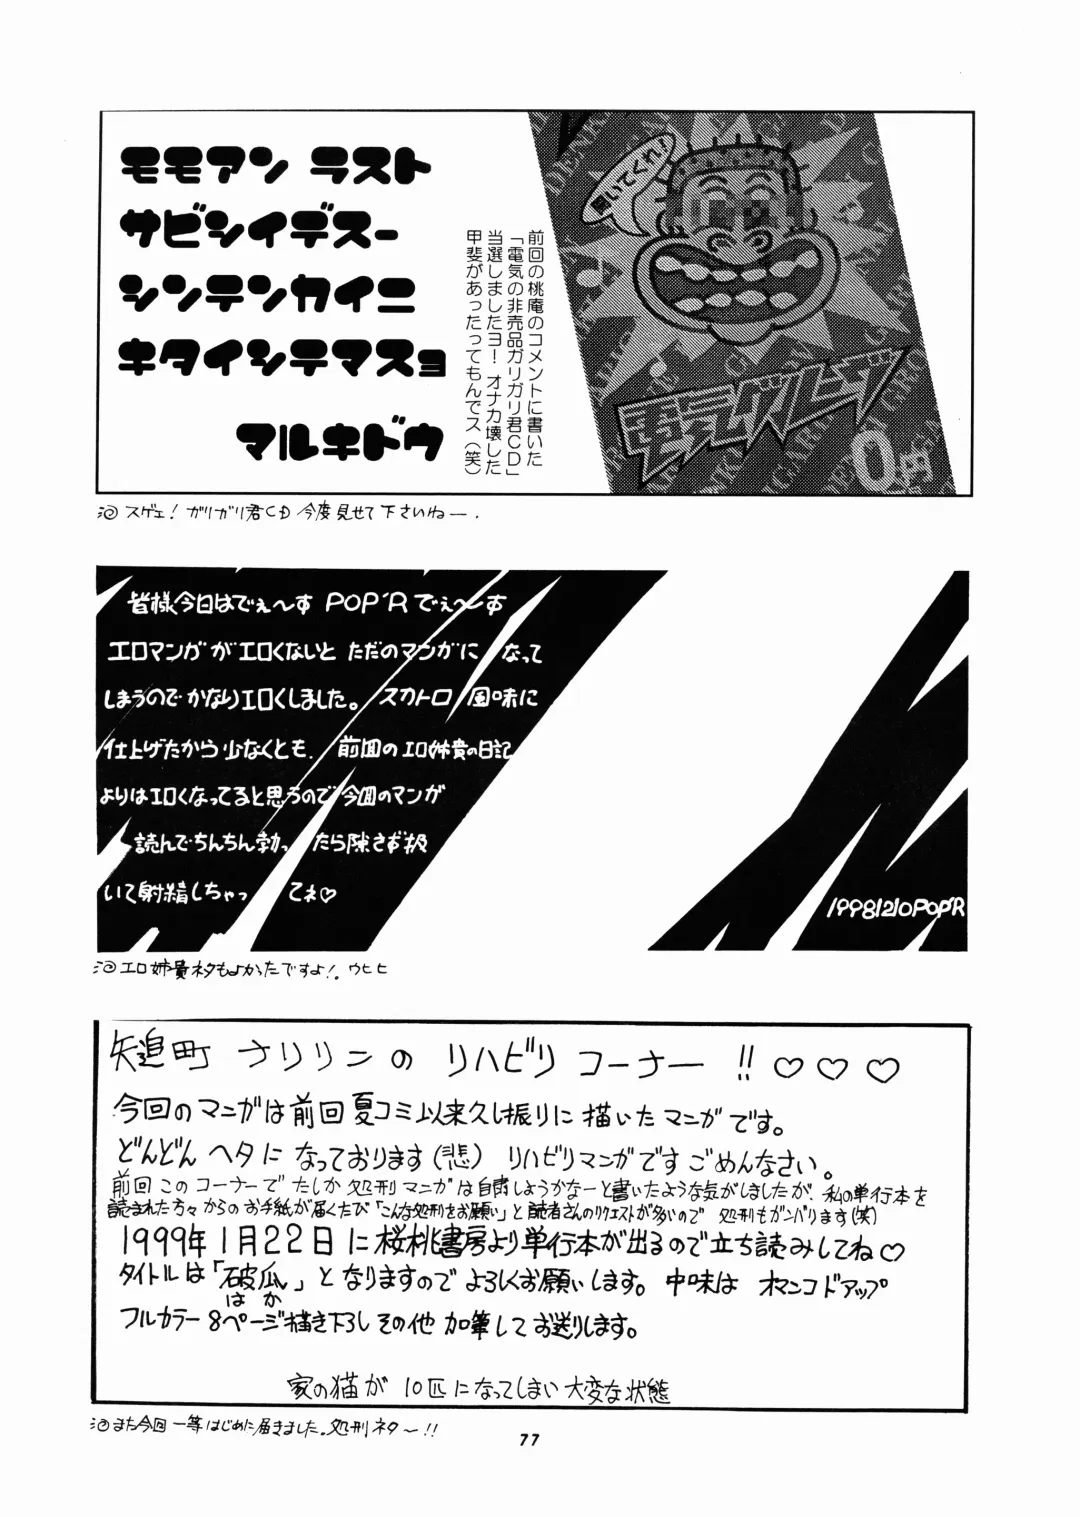 モモアン ラスト
サビシイデスー
シンテンカイニ
キタイシテマスョ
マルキドウ
前回の桃庵のコメントに書いた
「電気の非売品ガリガリ君CD」
当選しましたヨ! オナカ壊した
甲斐があったってもんでス(笑)
聞いてくれ!
電気グルーヴ
0円
スゲェ! ガリガリ君CD 今度見せて下さいねー.
皆様今日はでぇ〜す POP'Rでぇ〜す
エロマンガがエロくないと ただのマンガに なって
しまうので かなりエロくしました。 スカトロ 風味に
仕上げたから 少なくとも. 前回の エロ姉貴の日記
よりはエロくなってると思うので今回のマンガ
読んでちんちん勃っ たら隙さず扱
いて射精しちゃっ てネ♡
19981210POP'R
エロ姉貴ネタもよかったですよ!. ウヒヒ
矢追町 ナリリンの リハビリ コーナー !! ♡♡♡
今回のマンガは前回夏コミ以来久し振りに描いたマンガです。
どんどん ヘタに なっております(悲) リハビリマンガです ごめんなさい。
前回 このコーナーで たしか 処刑マンガは自粛しようかなーと書いたような気がしましたが、私の単行本を
読まれた方々からの お手紙が届くたび「こんな処刑をお願い」と読者さんのリクエストが多いので 処刑もガンバります(笑)
1999年1月22日に桜桃書房より単行本が出るので立ち読みしてね♡
タイトルは「破瓜」と なりますので よろしくお願いします。 中味は オマンコドアップ
はか
フルカラー 8ページ描き下ろし その他 加筆して お送りします。
家の猫が 10匹になってしまい 大変な状態
また今回一等はじめに届きました。処刑ネタ〜!!
77